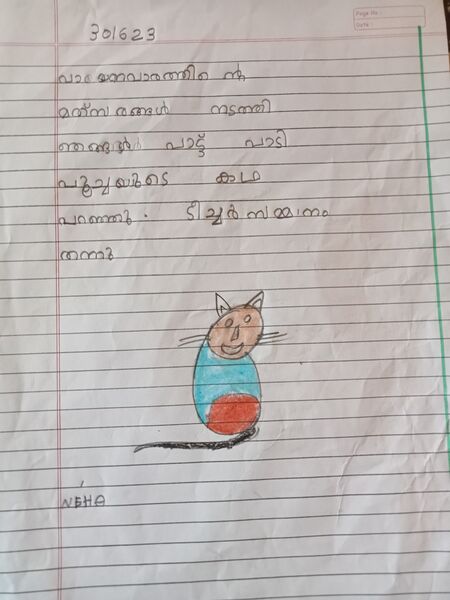 Page No:
Date:
30/6/23
വായനവാരത്തിന്റെ
മത്സരങ്ങൾ നടത്തി
ഞങ്ങൾ പാട്ട് പാടി
പൂച്ചയുടെ കഥ
പറഞ്ഞു. ടീച്ചർ സമ്മാനം
തന്നു
NEHA